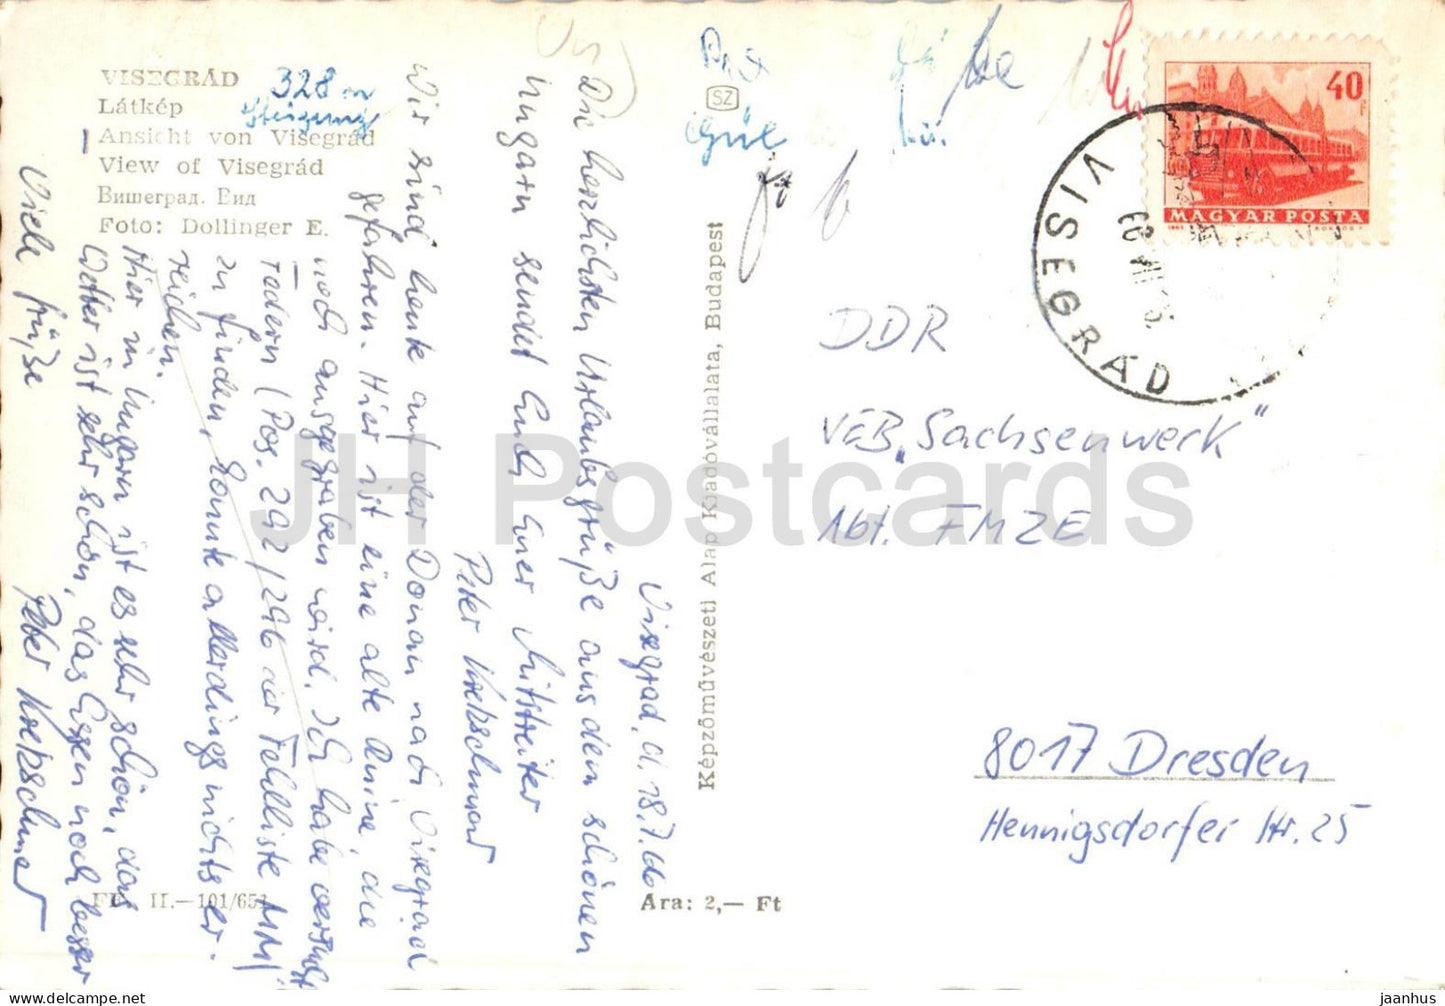 VISEGRÁD
Látkép
Ansicht von Visegrád
View of Visegrád
Вишеград. Вид
Foto: Dollinger E.
328 m
Steigung
Visegrad, d. 18.7.66
Die herzlichsten Urlaubsgrüße aus dem schönen
Ungarn sendet Euch Euer Mitstreiter
Peter Kretzschmar
Wir sind heute auf der Donau nach Visegrád
gefahren. Hier ist eine alte Ruine, die
noch ausgegraben wird. Ich habe versucht
Federn (Pos. 292/296 der Fehlliste MM)
zu finden, konnte allerdings nichts er-
reichen.
Hier in Ungarn ist es sehr schön, das
Wetter ist sehr schön, das Essen noch besser
Viele Grüße
Peter Kretzschmar
II.—101/651
Ára: 2,— Ft
Képzőművészeti Alap Kiadóvállalata, Budapest
SZ
40
MAGYAR POSTA
VISEGRÁD
DDR
VEB „Sachsenwerk"
Abt. FMZE
8017 Dresden
Hennigsdorfer Str. 25
JH Postcards
jaanhus